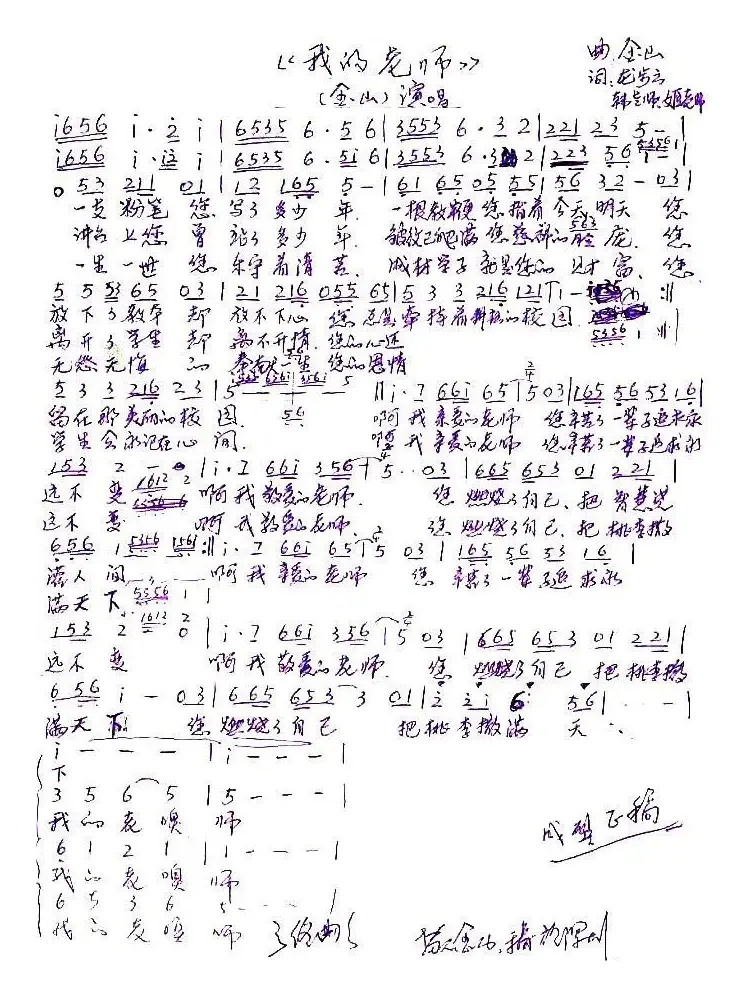 《我的老师》
曲:金山
词:
(金山)演唱
i656 i·2 i | 6535 6·56 | 3553 6·32 | 221 23 5 - |
i656 i·i2 i | 6535 6·5i6 | 3553 6·3 2 | 223 56
0 53 211 01 | 12 165 5 - | 61 65 05 55 | 56 32 - 03 |
一支粉笔 您写了多少年. 一根教鞭您指着今天明天 您
讲台上您曾站了多少年. 皱纹已爬满您慈祥的脸庞. 您
一生一世 您乐守着清苦. 成材学子就是您的 财富、您
5 5 53 65 03 | 21 216 055 65 | 5 3 3 216 121 | 1 -
放下了教本 却放不下心 您总是牵挂着 的校园
离开了学生 却离不开情. 您的心还
无怨无悔的 一生 您的恩情
5 3 3 216 23 | 5 - - - i·7 66i 65 | 5 03 | 165 56 53 16 |
留在那美丽的校园. 啊我亲爱的老师 您辛苦了一辈子追求永
学生会永记在心间. 啊我亲爱的老师 您辛苦了一辈子追求永
153 2 - | i·7 66i 356 | 5 ·· 03 | 665 653 01 221 |
远不变 啊我敬爱的老师. 您燃烧了自己、把智慧洒
远不变 啊我敬爱的老师. 您燃烧了自己、把桃李撒
656 1 5356 1561 :|| i·7 66i 65 | 5 03 | 165 56 53 16 |
满人间 啊我亲爱的老师 您辛苦了一辈子追求永
满天下
153 2 0 | i·7 66i 356 | 5 03 | 665 653 01 221 |
远不变 啊我敬爱的老师. 您燃烧了自己 把桃李撒
656 i - 03 | 665 653 3 01 | 2 2i 6 56 | · - - - |
满天下! 您燃烧了自己 把桃李撒满天
i - - - | i - - - |
下
3 5 6 5 | 5 - - - |
我的老噢师
6 1 2 1 | 1 - - - |
我的老噢师
6 5 3 6 5 - - -
我的老噢师
终曲
成型正稿